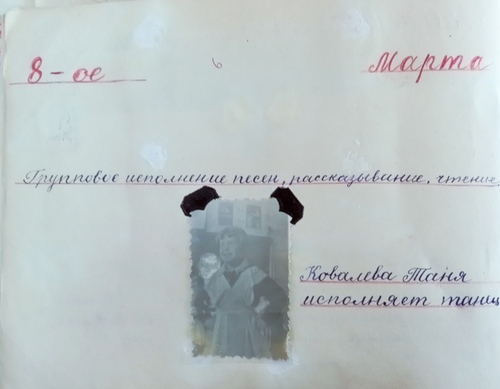 8-ое Марта
Групповое исполнение песен, рассказывание, чтение
Ковалева Таня
исполняет танец